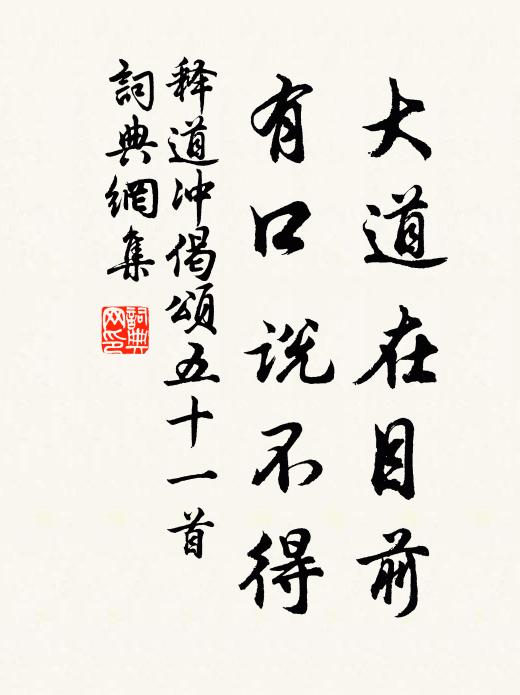 大道在目前
有口说不得
释道冲偈頌五十一首
詞典網集
詞典网印